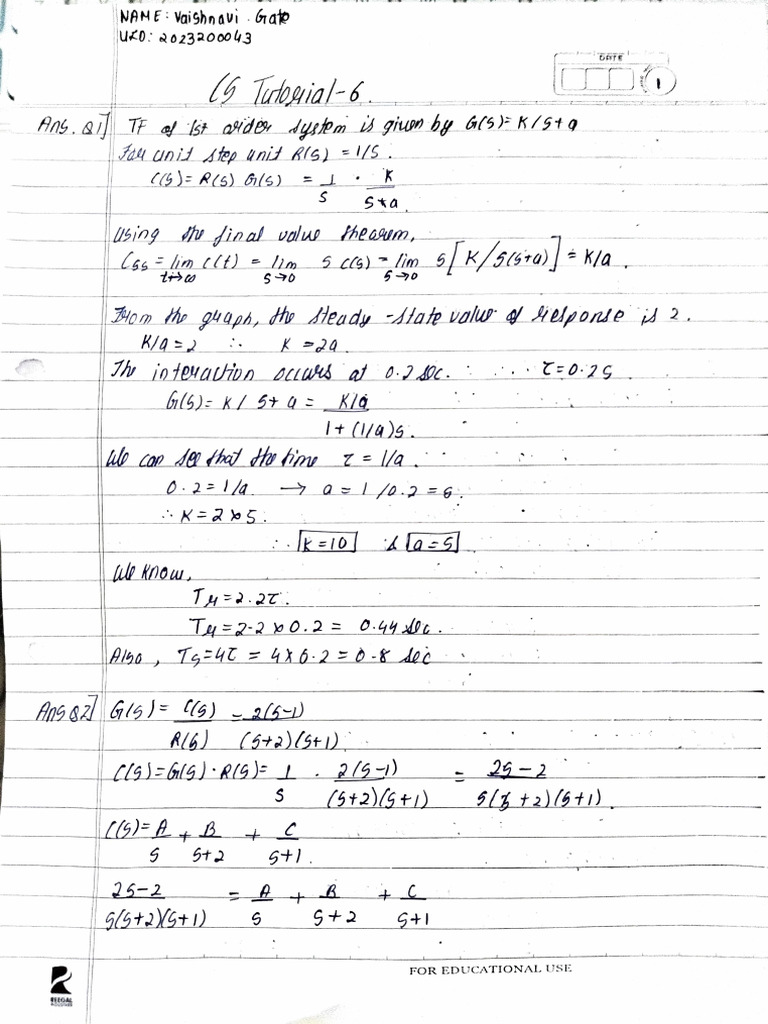 NAME: Vaishnavi. Gate
UID: 2023200043
DATE
1
CS Tutorial-6.
Ans. Q1] TF of 1st order system is given by G(s)= K/s+a
For unit step unit R(s) = 1/s.
C(s)= R(s) G(s) = 1/s . K/s+a
Using the final value theorem,
Css = lim t→∞ C(t) = lim s→0 s C(s) = lim s→0 s[K/s(s+a)] = K/a.
From the graph, the steady-state value of response is 2.
K/a=2 ∴ K=2a.
The interaction occurs at 0.2 sec. ∴ τ=0.2s
G(s)= K/s+a = K/a / 1+(1/a)s.
We can see that the time τ = 1/a.
0.2=1/a. → a = 1/0.2 = 5.
∴ K = 2×5.
∴ K=10 & a=5
We know,
Tr=2.2τ.
Tr=2.2×0.2= 0.44 sec.
Also, Ts=4τ = 4×0.2=0.8 sec
Ans Q2] G(s)= C(s)/R(s) = 2(s-1)/(s+2)(s+1).
C(s)=G(s)·R(s)= 1/s . 2(s-1)/(s+2)(s+1) = 2s-2/s(s+2)(s+1).
C(s)= A/s + B/s+2 + C/s+1.
2s-2/s(s+2)(s+1) = A/s + B/s+2 + C/s+1
REEGAL
FOR EDUCATIONAL USE